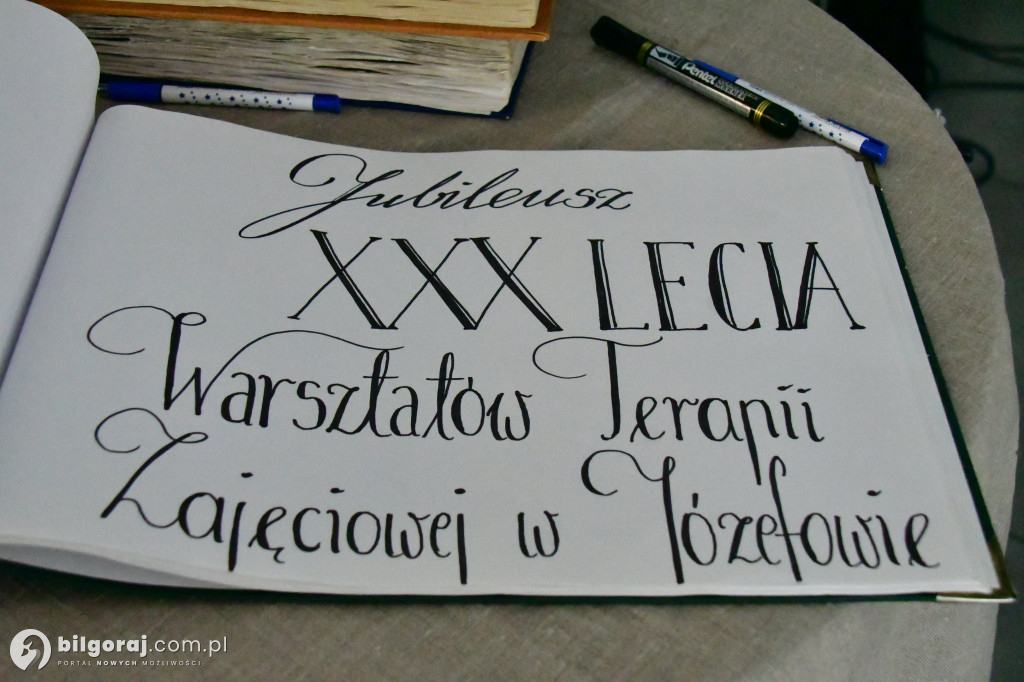 Pentel
Jubileusz
XXX LECIA
Warsztatów Terapii
Zajęciowej w Józefowie
bilgoraj.com.pl
PORTAL NOWYCH MOŻLIWOŚCI